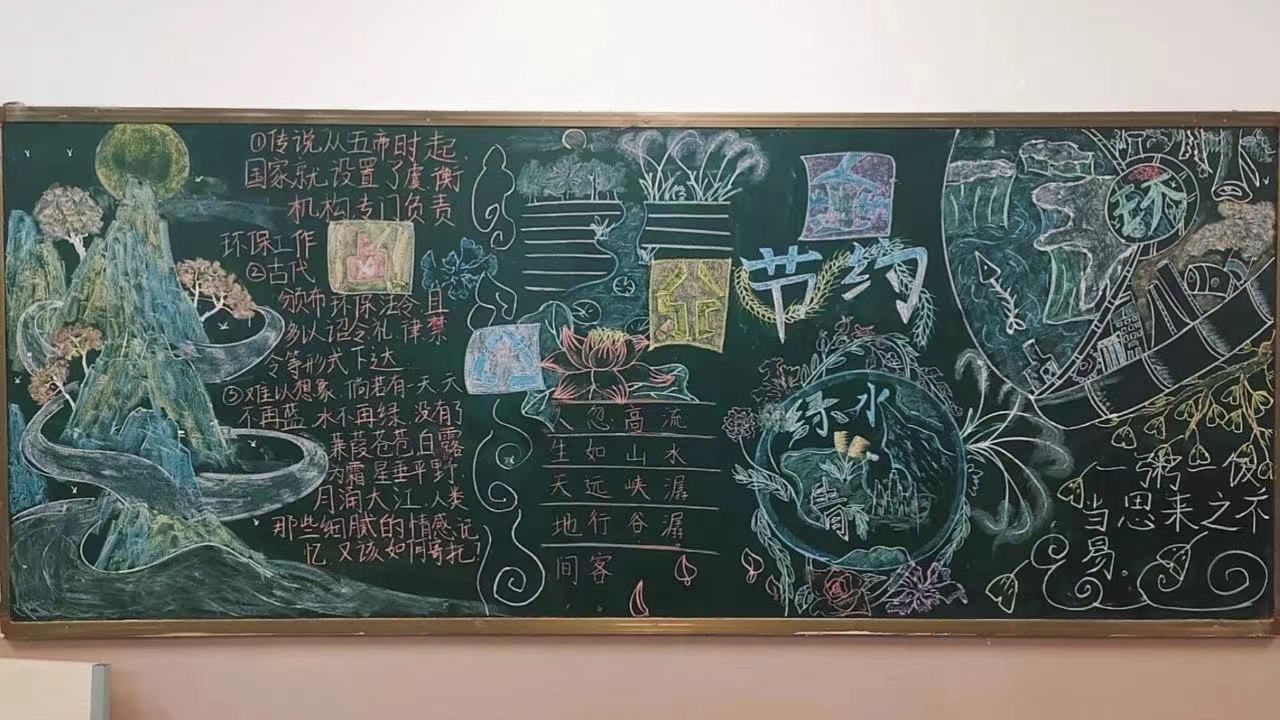 ①传说从五帝时起,
国家就设置了虞衡
机构专门负责
环保工作
②古代
颁布环保法令且
多以诏令、礼、律、禁
令等形式下达
③难以想象,倘若有一天,天
不再蓝,水不再绿,没有了
蒹葭苍苍,白露
为霜,星垂平野,
月涌大江,人类
那些细腻的情感记
忆,又该如何寄托?
人忽高流
生如山水
天远峡潺
地行谷潺
间客
节约
绿水
青
一粥一饭
当思来之不
易.